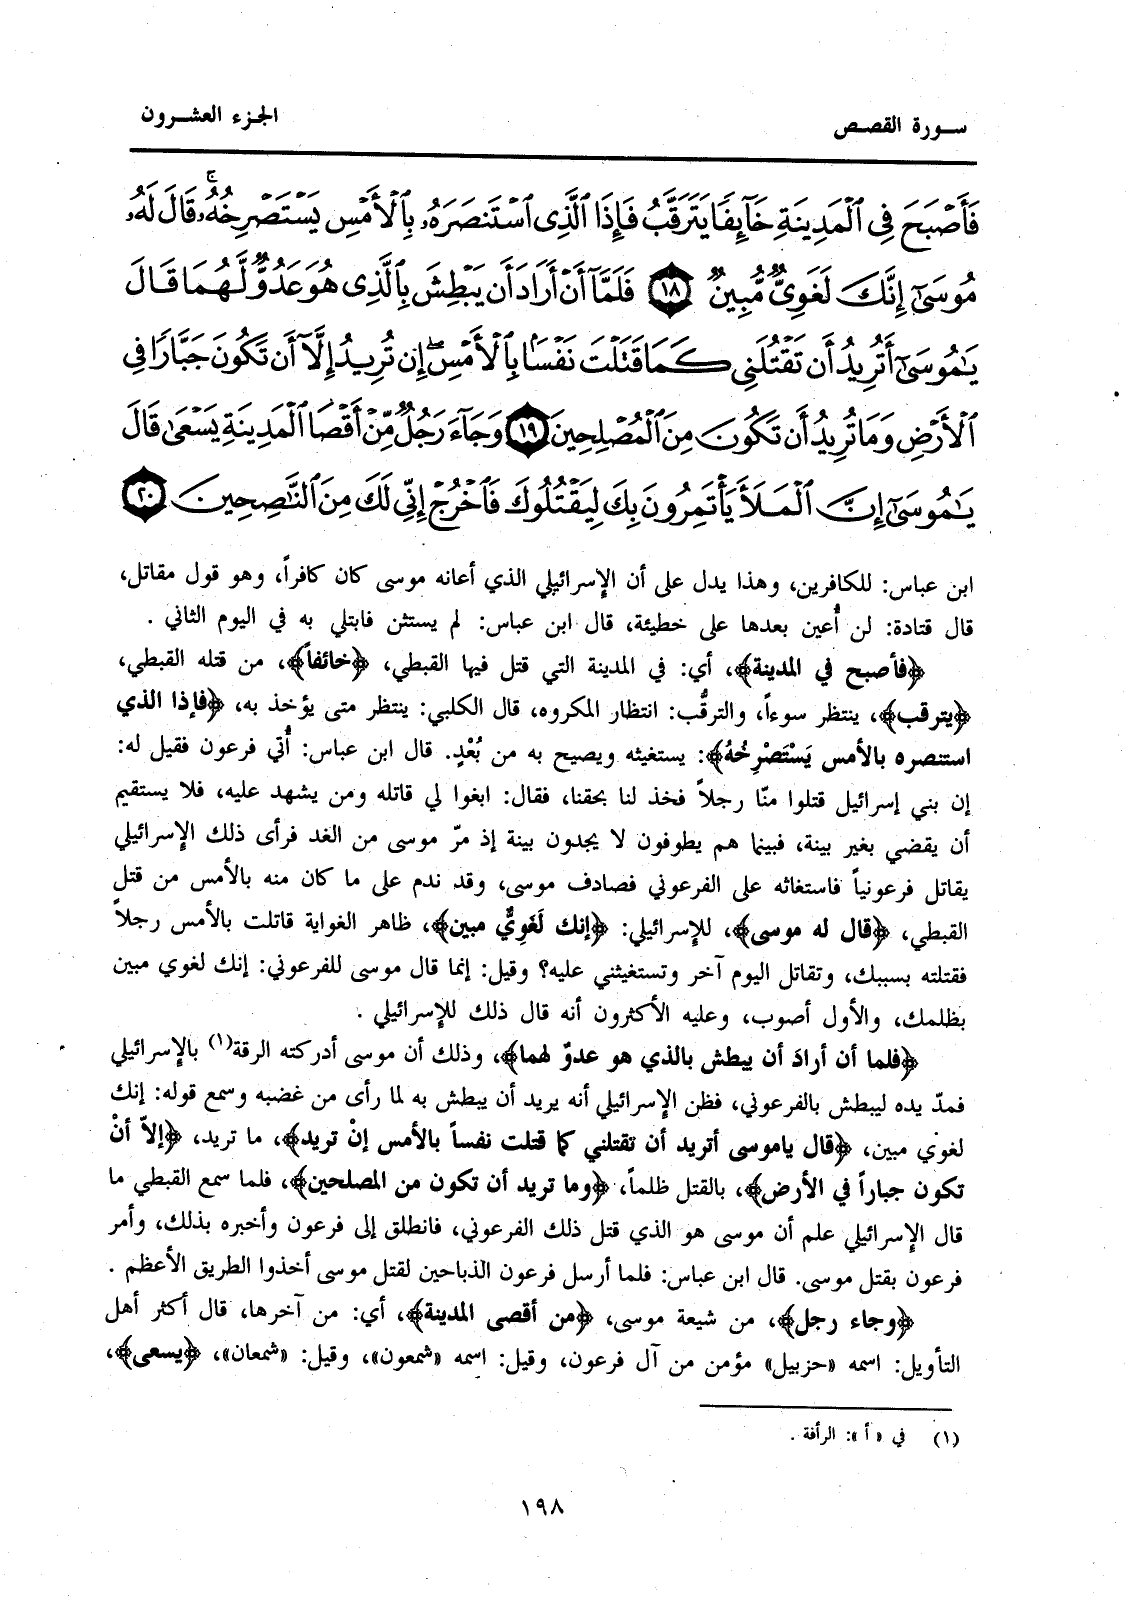 سورة القصص
الجزء العشرون
فَأَصْبَحَ فِى ٱلْمَدِينَةِ خَآئِفًا يَتَرَقَّبُ فَإِذَا ٱلَّذِى ٱسْتَنصَرَهُۥ بِٱلْأَمْسِ يَسْتَصْرِخُهُۥۚ قَالَ لَهُۥ
مُوسَىٰٓ إِنَّكَ لَغَوِىٌّ مُّبِينٌ ١٨ فَلَمَّآ أَنْ أَرَادَ أَن يَبْطِشَ بِٱلَّذِى هُوَ عَدُوٌّ لَّهُمَا قَالَ
يَٰمُوسَىٰٓ أَتُرِيدُ أَن تَقْتُلَنِى كَمَا قَتَلْتَ نَفْسًۢا بِٱلْأَمْسِۖ إِن تُرِيدُ إِلَّآ أَن تَكُونَ جَبَّارًا فِى
ٱلْأَرْضِ وَمَا تُرِيدُ أَن تَكُونَ مِنَ ٱلْمُصْلِحِينَ ١٩ وَجَآءَ رَجُلٌ مِّنْ أَقْصَا ٱلْمَدِينَةِ يَسْعَىٰ قَالَ
يَٰمُوسَىٰٓ إِنَّ ٱلْمَلَأَ يَأْتَمِرُونَ بِكَ لِيَقْتُلُوكَ فَٱخْرُجْ إِنِّى لَكَ مِنَ ٱلنَّٰصِحِينَ ٢٠
ابن عباس: للكافرين، وهذا يدل على أن الإسرائيلي الذي أعانه موسى كان كافراً، وهو قول مقاتل،
قال قتادة: لن أُعين بعدها على خطيئة، قال ابن عباس: لم يستثن فابتلي به في اليوم الثاني .
﴿فأصبح في المدينة﴾، أي: في المدينة التي قتل فيها القبطي، ﴿خائفاً﴾، من قتله القبطي،
﴿يترقب﴾، ينتظر سوءاً، والترقُّب: انتظار المكروه، قال الكلبي: ينتظر متى يؤخذ به، ﴿فإذا الذي
استنصره بالأمس يَسْتَصْرِخُهُ﴾: يستغيثه ويصيح به من بُعْدٍ. قال ابن عباس: أُتي فرعون فقيل له:
إن بني إسرائيل قتلوا منّا رجلاً فخذ لنا بحقنا، فقال: ابغوا لي قاتله ومن يشهد عليه، فلا يستقيم
أن يقضي بغير بينة، فبينما هم يطوفون لا يجدون بينة إذ مرّ موسى من الغد فرأى ذلك الإسرائيلي
يقاتل فرعونياً فاستغاثه على الفرعوني فصادف موسى، وقد ندم على ما كان منه بالأمس من قتل
القبطي، ﴿قال له موسى﴾، للإسرائيلي: ﴿إنك لَغَوِيٌّ مبين﴾، ظاهر الغواية قاتلت بالأمس رجلاً
فقتلته بسببك، وتقاتل اليوم آخر وتستغيثني عليه؟ وقيل: إنما قال موسى للفرعوني: إنك لغوي مبين
بظلمك، والأول أصوب، وعليه الأكثرون أنه قال ذلك للإسرائيلي .
﴿فلما أن أرادَ أن يبطش بالذي هو عدوّ لهما﴾، وذلك أن موسى أدركته الرقة(١) بالإسرائيلي
فمدّ يده ليبطش بالفرعوني، فظن الإسرائيلي أنه يريد أن يبطش به لما رأى من غضبه وسمع قوله: إنك
لغوي مبين، ﴿قال ياموسى أتريد أن تقتلني كما قتلت نفساً بالأمس إنْ تريد﴾، ما تريد، ﴿إلاّ أنْ
تكون جباراً في الأرض﴾، بالقتل ظلماً، ﴿وما تريد أن تكون من المصلحين﴾، فلما سمع القبطي ما
قال الإسرائيلي علم أن موسى هو الذي قتل ذلك الفرعوني، فانطلق إلى فرعون وأخبره بذلك، وأمر
فرعون بقتل موسى. قال ابن عباس: فلما أرسل فرعون الذباحين لقتل موسى أخذوا الطريق الأعظم .
﴿وجاء رجل﴾، من شيعة موسى، ﴿من أقصى المدينة﴾، أي: من آخرها، قال أكثر أهل
التأويل: اسمه «حزبيل» مؤمن من آل فرعون، وقيل: اسمه «شمعون»، وقيل: «شمعان»، ﴿يسعى﴾،
(١) في «أ»: الرأفة .
١٩٨